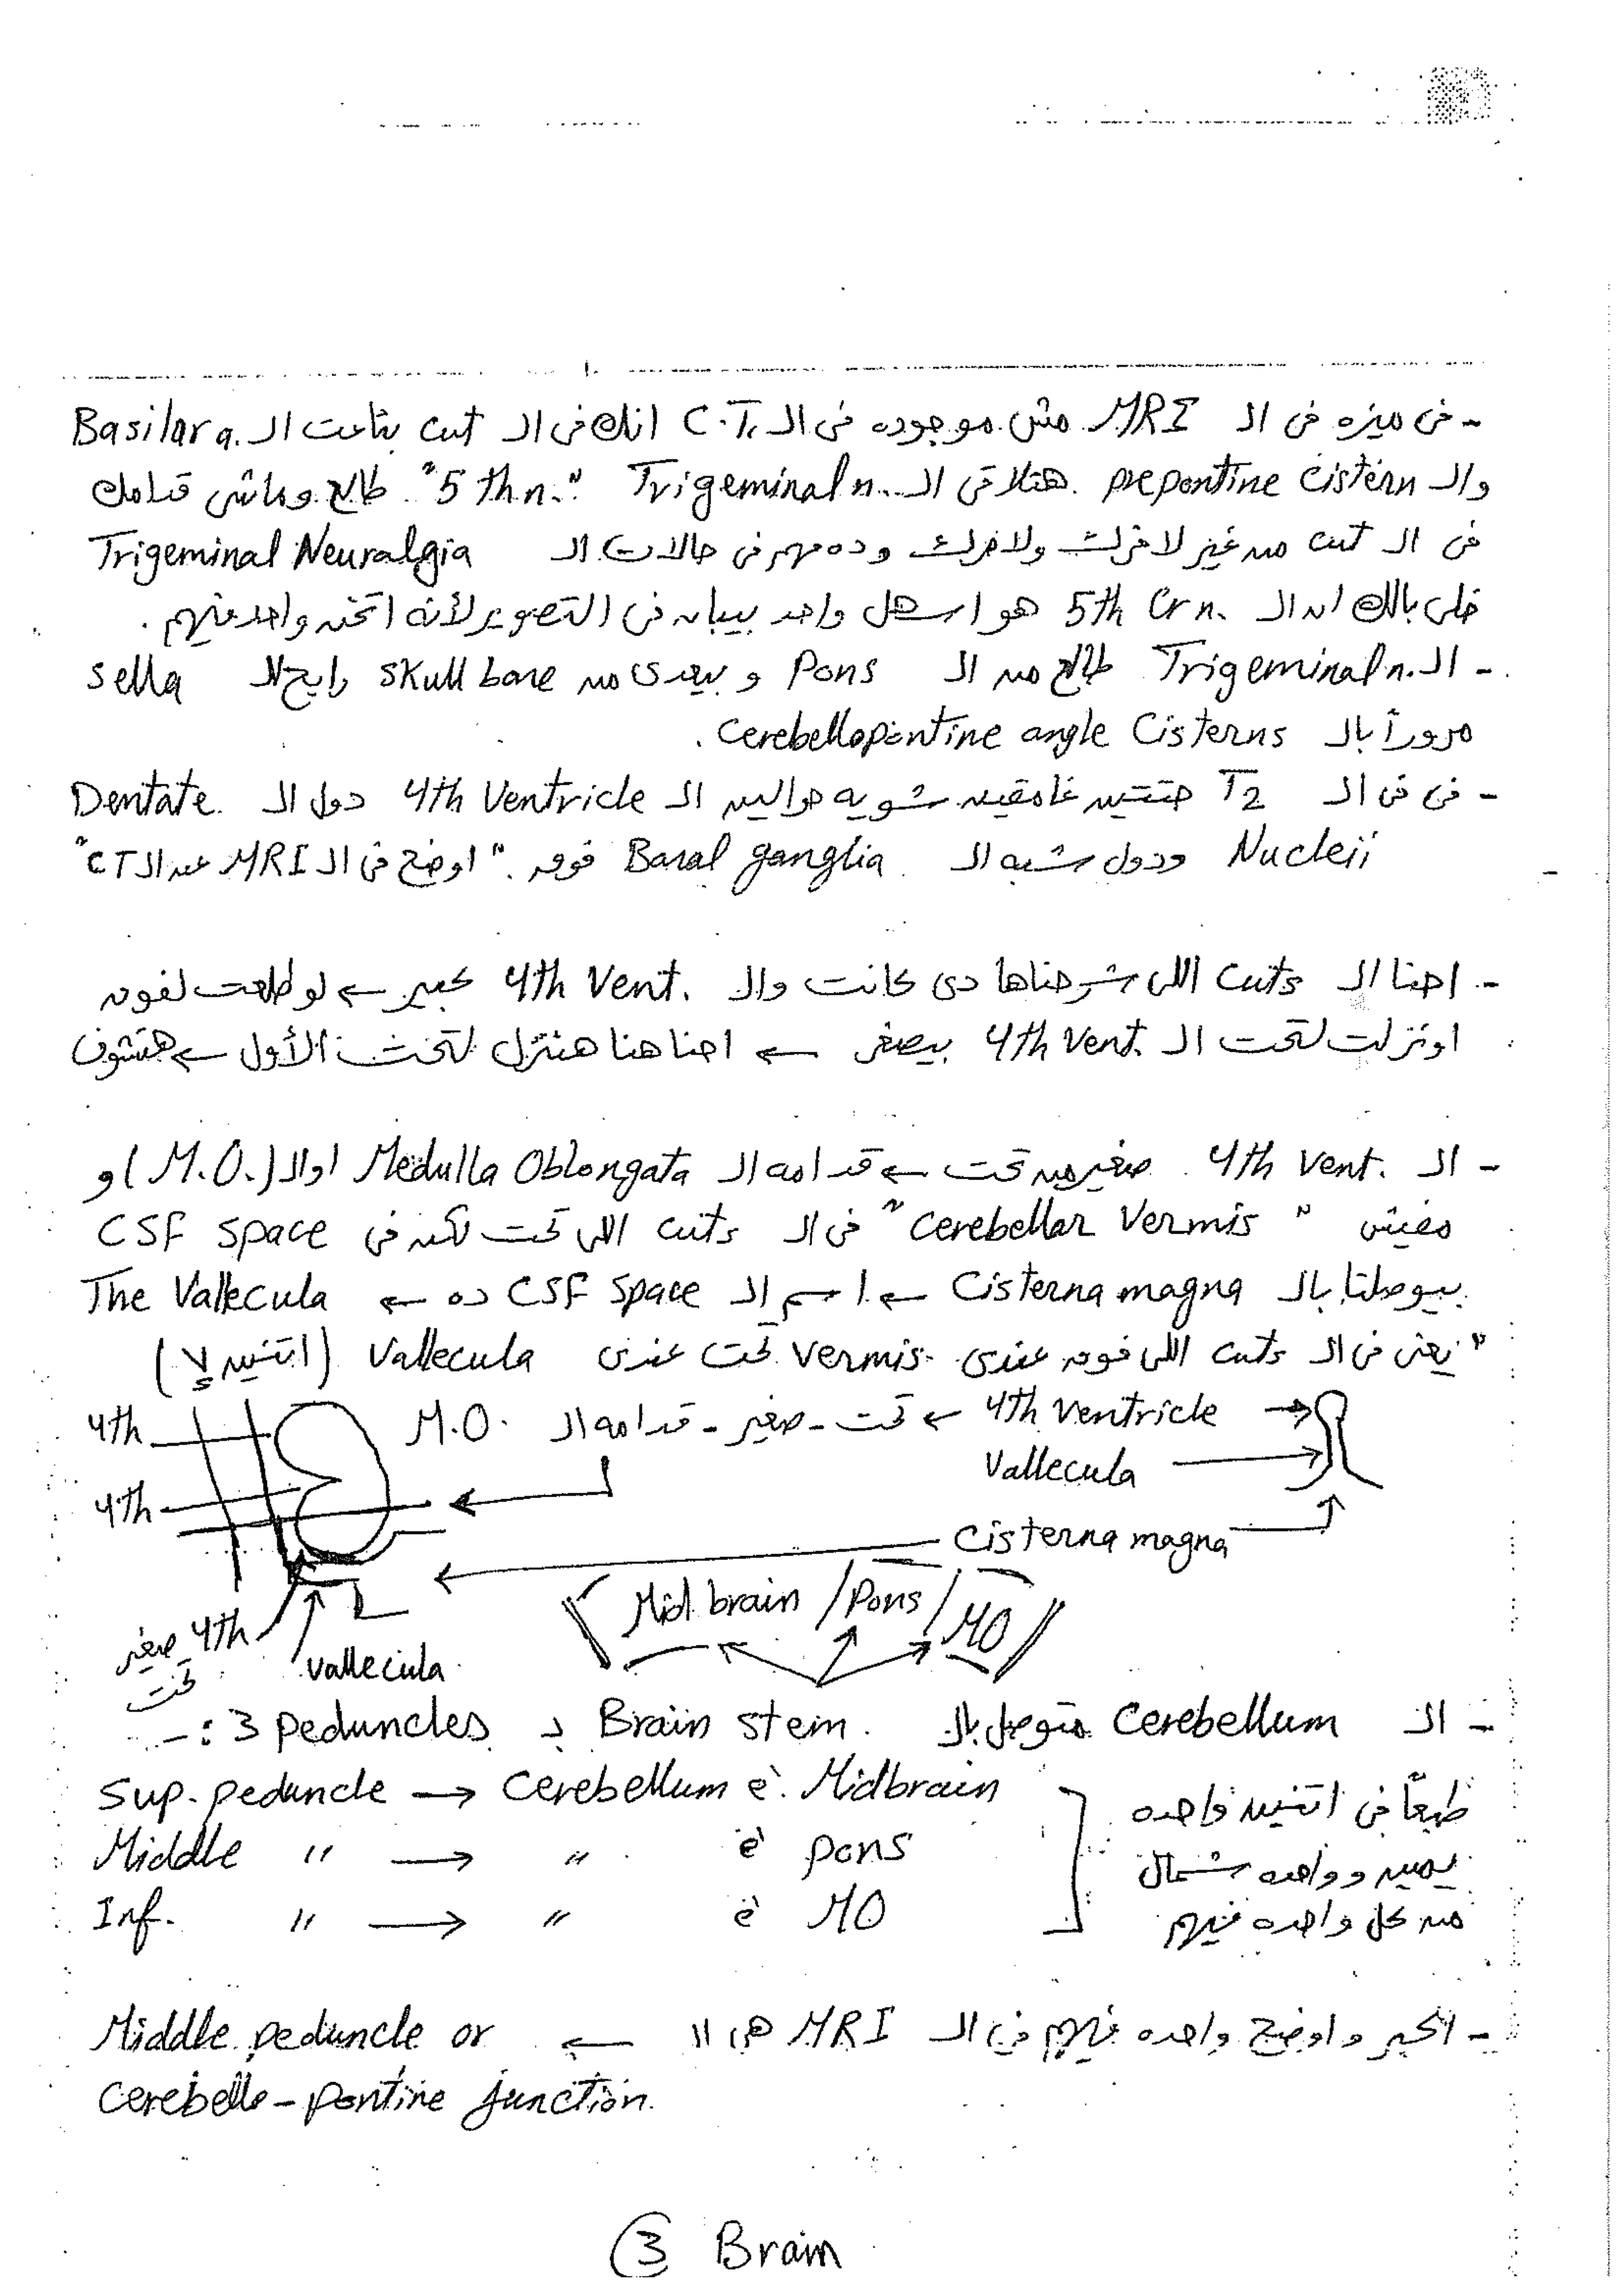 - فى ميزه فى الـ MRI مش موجوده فى الـ C.T. انك فى الـ cut بتاعت الـ Basilar a.
والـ prepontine cistern هتلاقى الـ Trigeminal n. "5 th n." طالع وماشى قدامك
فى الـ cut من غير لا فزلت ولا فزلت وده مهم فى حالات الـ Trigeminal Neuralgia
خلى بالك ان الـ 5th Cr n. هو اسهل واحد بيبان فى التصوير لأنه اتخن واحد فيهم .
- الـ Trigeminal n. طالع من الـ Pons و بيعدى من skull base رايح للـ sella
مروراً بالـ Cerebellopontine angle Cisterns .
- فى فى الـ T2 حتتين غامقين شويه حوالين الـ 4th Ventricle دول الـ Dentate
Nucleii ودول شبه الـ Basal ganglia فوق . " اوضح فى الـ MRI عن الـ CT "
- احنا الـ cuts اللى شرحناها دى كانت والـ 4th Vent. كبير ← لو طلعت لفوق
او نزلت لتحت الـ 4th Vent. بيصغر ← احنا هنا هننزل لتحت الأول ← هنشوف
- الـ 4th Vent. صغير من تحت ← قدامه الـ Medulla Oblongata او الـ (M.O.) و
مفيش " Cerebellar Vermis " فى الـ cuts اللى تحت لكن فى CSF space
بيوصلنا بالـ Cisterna magna ← اسم الـ CSF Space ده ← The Vallecula
" يعنى فى الـ cuts اللى فوق عندى vermis تحت عندى Vallecula (اتنين لا)
4th Ventricle ← تحت - صغير - قدامه الـ M.O.
4th
Vallecula
4th
Cisterna magna
Mid brain / Pons / MO
4th صغير
تحت
vallecula
- الـ Cerebellum متوصل بالـ Brain stem بـ 3 peduncles :-
Sup. peduncle → Cerebellum è Midbrain
Middle " → " è pons
Inf. " → " è MO
طبعاً فى اتنين واحده
يمين وواحده شمال
من كل واحده فيهم
- اكبر و اوضح واحده فيهم فى الـ MRI هى الـ ← Middle peduncle or
Cerebello-pontine junction.
3 Brain